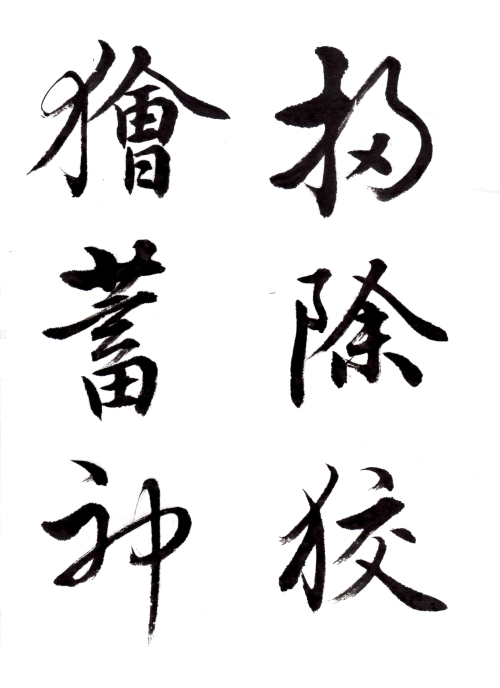 掃除狡
獪蓄神